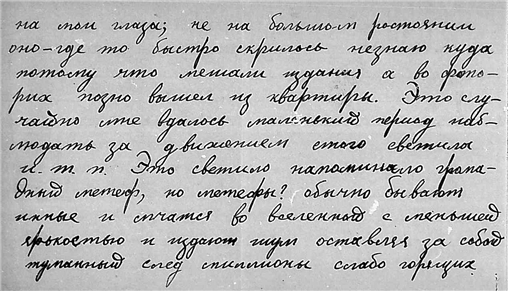 на мои глаза; не на большом ростоянии
оно-где то быстро скрилось незнаю куда
потому что мешали издания а во фоно-
рих позно вышел из квартиры. Это слу-
чайно мне вдалось маленький период наб-
людать за движением етого светила
и.т.п. Это светило напоминало гропа-
дный метеор, но метеоры? обычно бывают
инные и мчатся во вселенной с меньшей
яркостью и издают шум оставляя за собой
туманный след миллионы слабо горящих